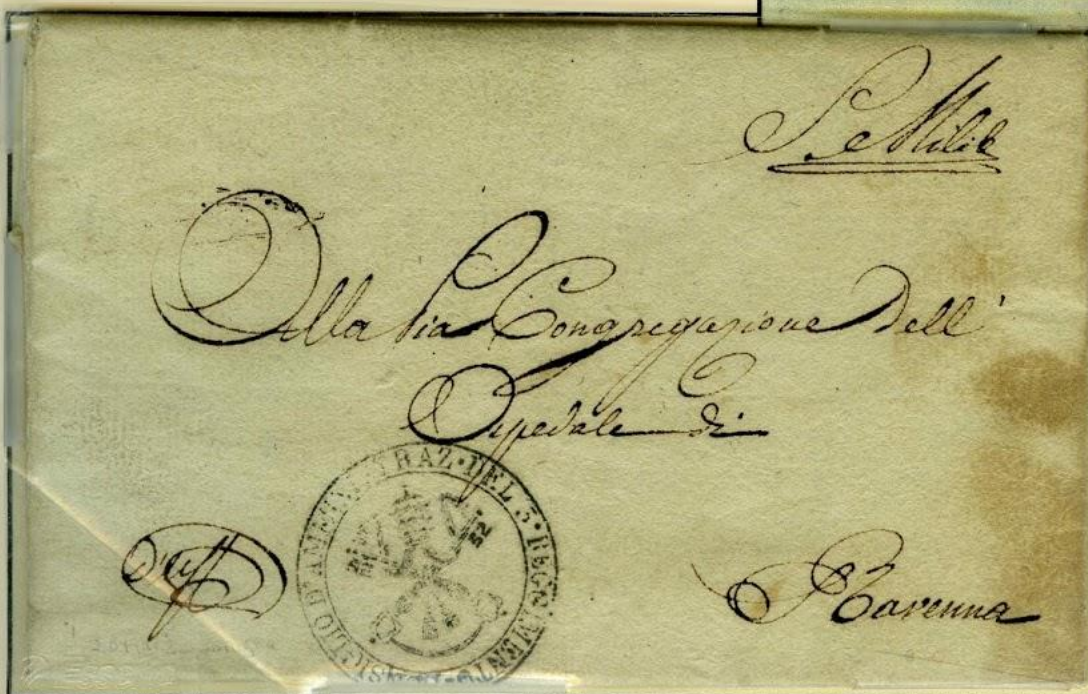 S. Milit.
Alla Pia Congregazione Dell'
Ospedale di
Ravenna
D'uff
CONSIGLIO D'AMMINISTRAZ. DEL 3. REGGIMENTO